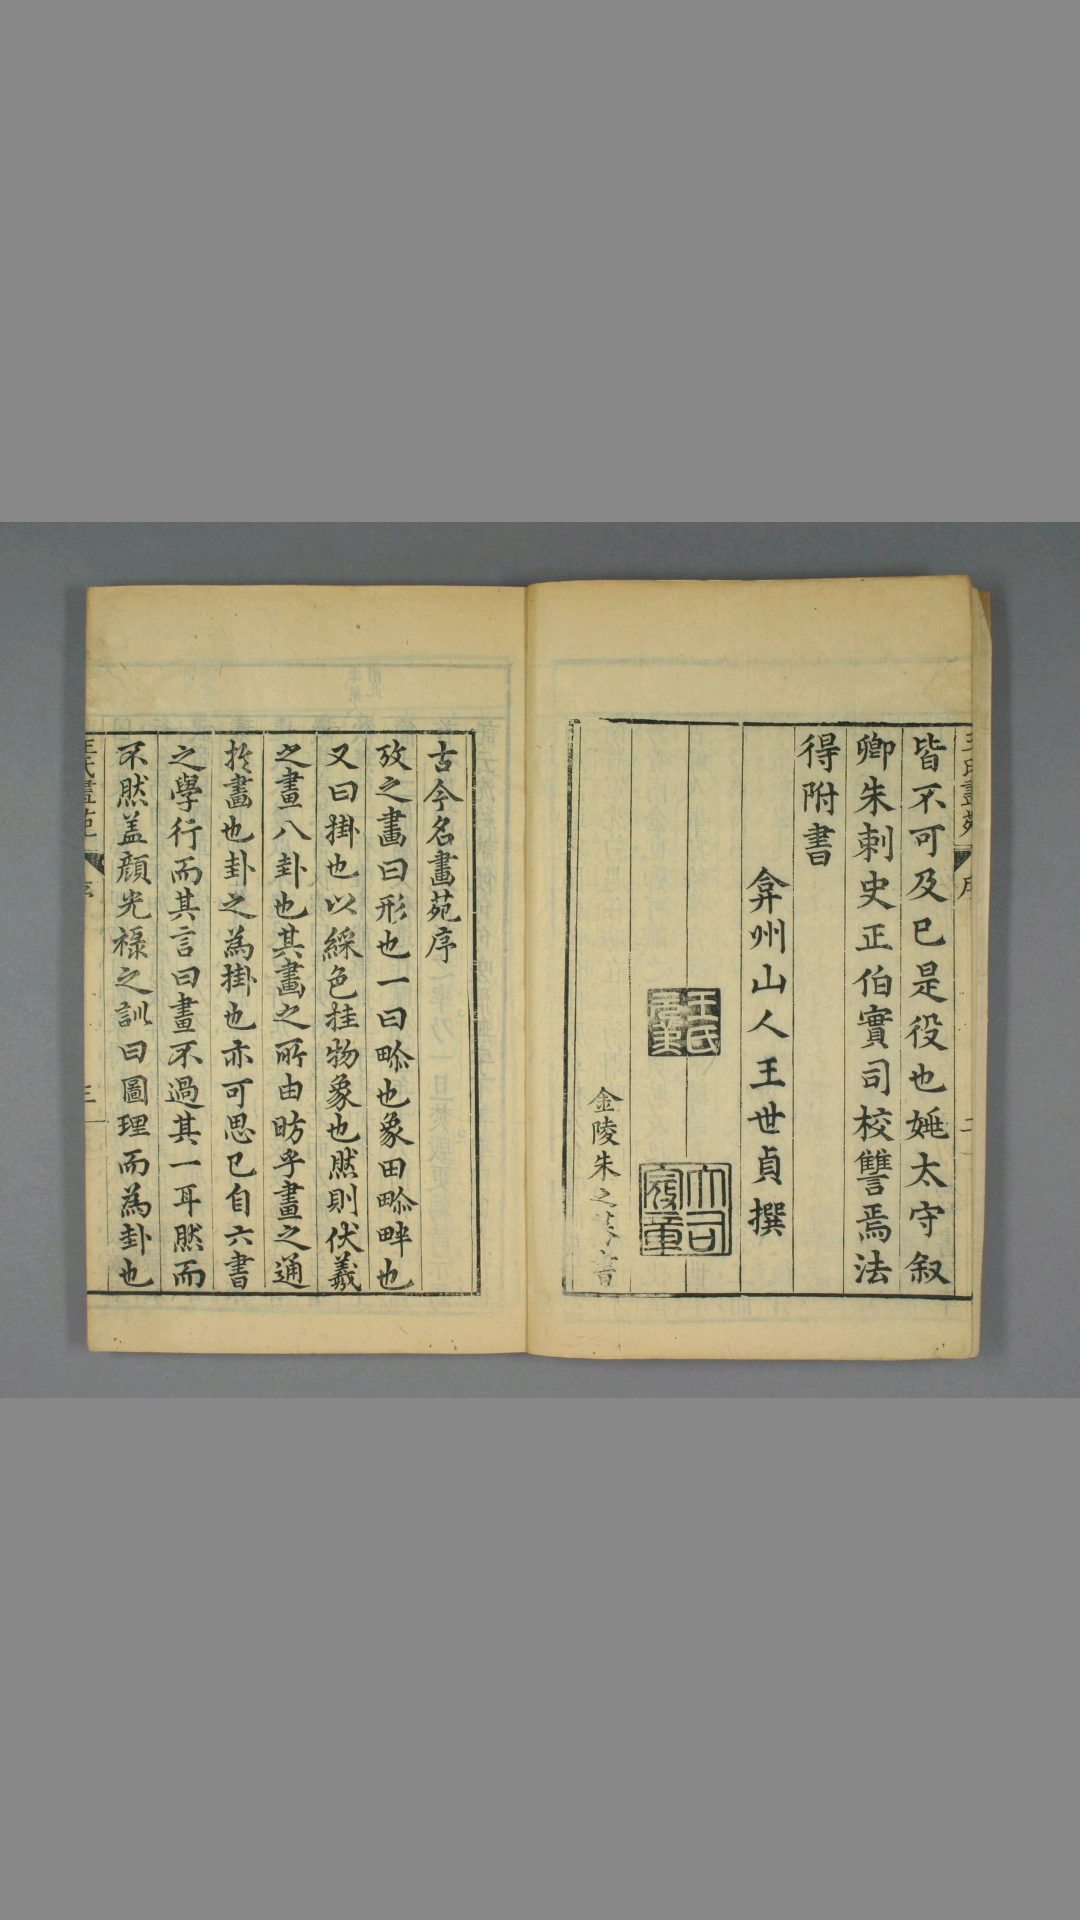 皆不可及已是役也姚太守叙
卿朱刺史正伯實司校讐焉法
得附書
弇州山人王世貞撰
王氏
大司
金陵朱之蕃書
古今名畫苑序
攷之畫曰形也一曰畛也象田畛畔也
又曰掛也以綵色挂物象也然則伏羲
之畫八卦也其畫之所由昉乎畫之通
於畫也卦之為掛也亦可思已自六書
之學行而其言曰畫不過其一耳然而
不然盖顔光禄之訓曰圖理而為卦也
王氏畫苑
序
三